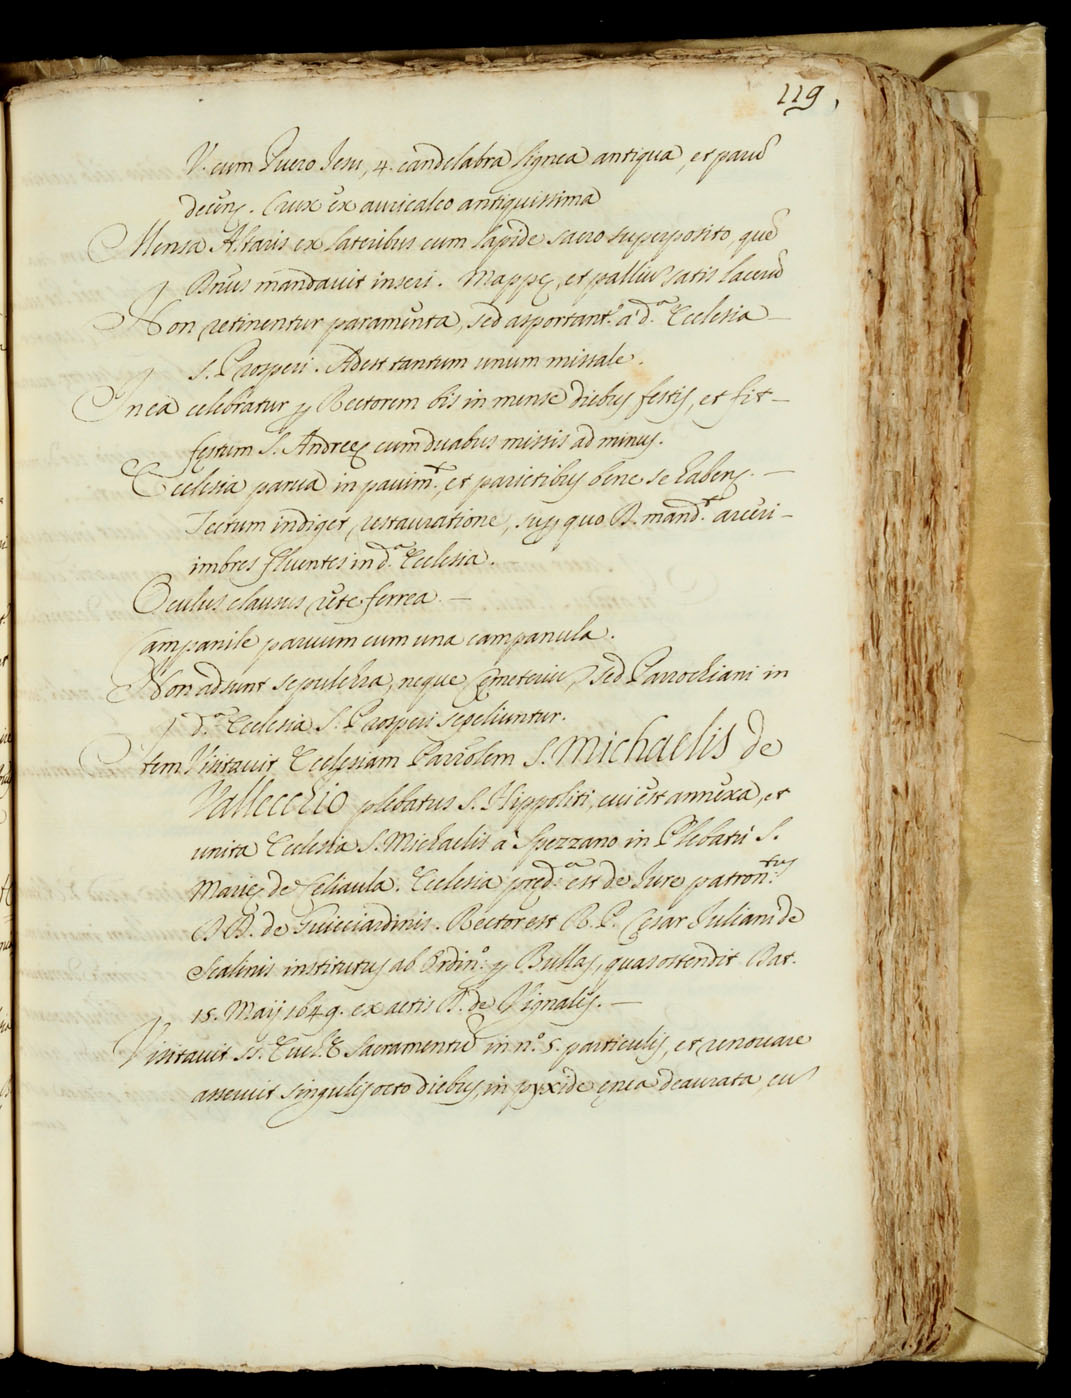 119.
V. cum Puero Jesu, 4. candelabra lignea antiqua, et parũ
decẽnt. Crux ex auricalco antiquissima
Mensa Altaris ex lateribus cum lapide sacro superposito, quẽ
Rm̃us mandavit inseri. Mappę, et palliũ satis lacerũ
Non retinentur paramenta, sed asportant.r a d.a Ecclesia —
S. Prosperi. Adest tantum unum missale.
In ea celebratur p Rectorem bis in mense diebus festis, et fit —
festum S. Andreę cum duabus missis ad minus.
Ecclesia parva in pavim.t et parietibus bene se habens. —
Tectum indiget restauratione, sup quo R. mand.t arceri —
imbres fluentes in d.a Ecclesia.
Oculus clausus rete ferrea —
Campanile parvum cum una campanula.
Non adsunt sepulchra, neque cęmeteriũ, sed Parrochiani in
d.a Ecclesia S. Prosperi sepeliuntur.
Item Visitavit Ecclesiam Parrõlem S. Michaelis de
Vallecchio plebatus S. Hippoliti, cui est annexa, et
unita Ecclesia S. Michaelis a Spezzano in Plebatu S.
Marię de Celiaula. Ecclesia pred.a est de Jure patron.tus
DD. de Guicciardinis. Rector est R. P. Cęsar Juliani de
Scalinis institutus ab Ordin.o p Bullas, quas ostendit Dat.
15. Maij 1649. ex actis D. de Vignalis. —
Visitavit SS. Euch.ę Sacramentũ in n.o 5. particulis, et renovare
asseruit singulis octo diebus, in pyxide ęnea deaurata, cũ